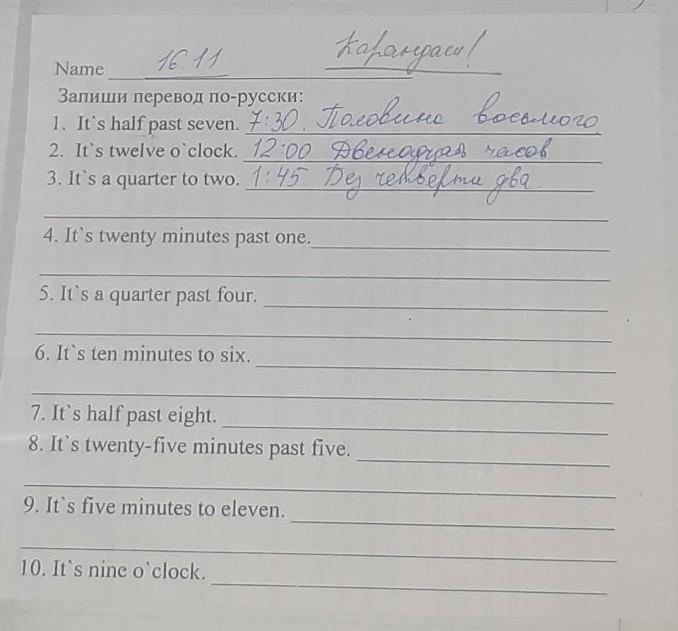 Карандаш!
Name 16.11
Запиши перевод по-русски:
1. It`s half past seven. 7:30. Половина восьмого
2. It`s twelve o`clock. 12:00 Двенадцать часов
3. It`s a quarter to two. 1:45 Без четверти два.
4. It`s twenty minutes past one.
5. It`s a quarter past four.
6. It`s ten minutes to six.
7. It`s half past eight.
8. It`s twenty-five minutes past five.
9. It`s five minutes to eleven.
10. It`s nine o`clock.